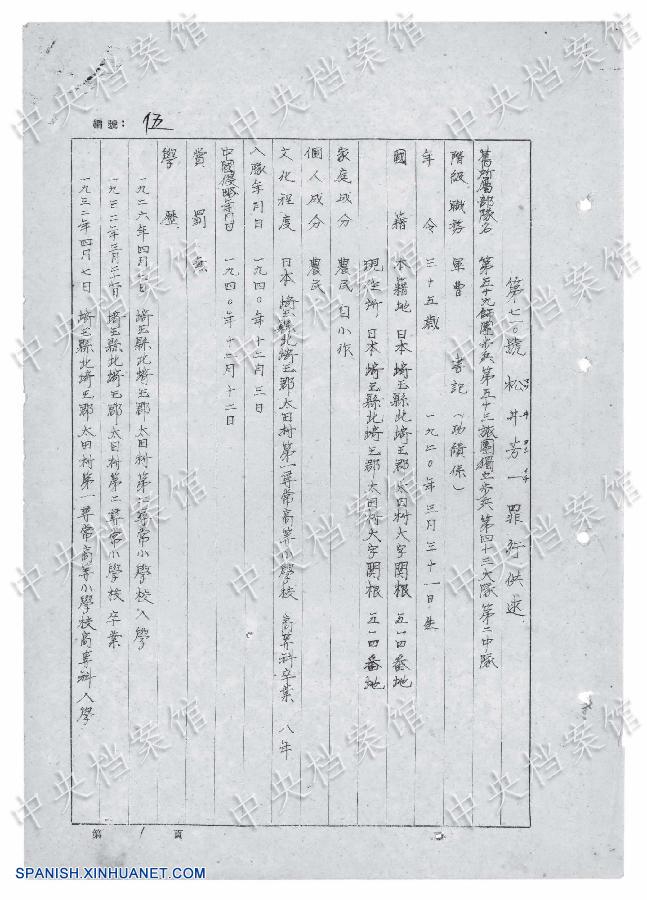 編號：伍
第七一〇號 松井芳一 罪行供述
舊所屬部隊名 第五十九師團步兵第五十三旅團獨立步兵第四十三大隊第二中隊
階級 職務 軍曹 書記（功績係）
年令 三十五歲 一九二〇年三月三十一日生
國籍 本籍地 日本埼玉縣北埼玉郡太田村大字関根 五一四番地
現住所，日本埼玉縣北埼玉郡太田村大字関根 五一四番地
家庭成分 農民 自小作
個人成分 農民
文化程度 日本埼玉縣北埼玉郡太田村第一尋常高等小學校 高等科卒業 八年
入隊年月日 一九四〇年十二月三日
中國侵略年月日 一九四〇年十二月十二日
賞罰 無
學歷
一九二六年四月 日 埼玉縣北埼玉郡太田村第二尋常小學校入學
一九三二年三月二十 日 埼玉縣北埼玉郡太田村第二尋常小學校卒業
一九三二年四月七日 埼玉縣北埼玉郡太田村第一尋常高等小學校高等科入學
第 1 頁
中央档案馆
SPANISH.XINHUANET.COM